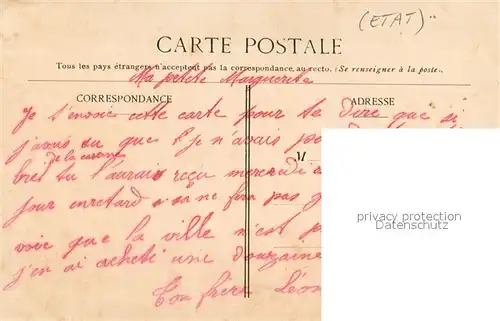 (ETAT)
CARTE POSTALE
Tous les pays étrangers n'acceptent pas la correspondance, au recto. (Se renseigner à la poste).
Ma petite Marguerite
CORRESPONDANCE ADRESSE
Je t'envoie cette carte pour te dire que si
j'avais su que je n'avais
de la caserne
M
tu l'aurais reçu mercredi
jour en retard sa ne fera pas
privacy protection
Datenschutz
voir que la ville n'est
j'en ai acheté une douzaine
Ton frère Léon